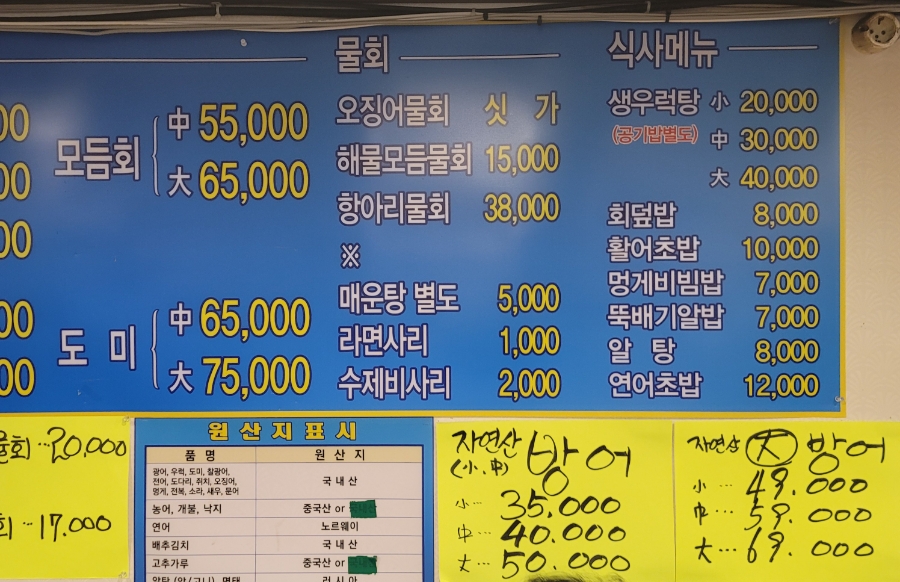 00
00
00
00
00
모듬회 中 55,000
大 65,000
도 미 中 65,000
大 75,000
물회
오징어물회 싯 가
해물모듬물회 15,000
항아리물회 38,000
※
매운탕 별도 5,000
라면사리 1,000
수제비사리 2,000
식사메뉴
생우럭탕 小 20,000
(공기밥별도) 中 30,000
大 40,000
회덮밥 8,000
활어초밥 10,000
멍게비빔밥 7,000
뚝배기알밥 7,000
알 탕 8,000
연어초밥 12,000
물회 ··· 20,000
회 ··· 17.000
원산지표시
품 명 원 산 지
광어, 우럭, 도미, 찰광어,
전어, 도다리, 쥐치, 오징어,
멍게, 전복, 소라, 새우, 문어
국 내 산
농어, 개불, 낙지 중국산 or
연어 노르웨이
배추김치 국 내 산
고추가루 중국산 or
러 시 아
자연산 방어
(小, 中)
小 ··· 35.000
中 ··· 40.000
大 ··· 50.000
자연산 大 방어
小 ··· 49.000
中 ··· 59.000
大 ··· 69.000